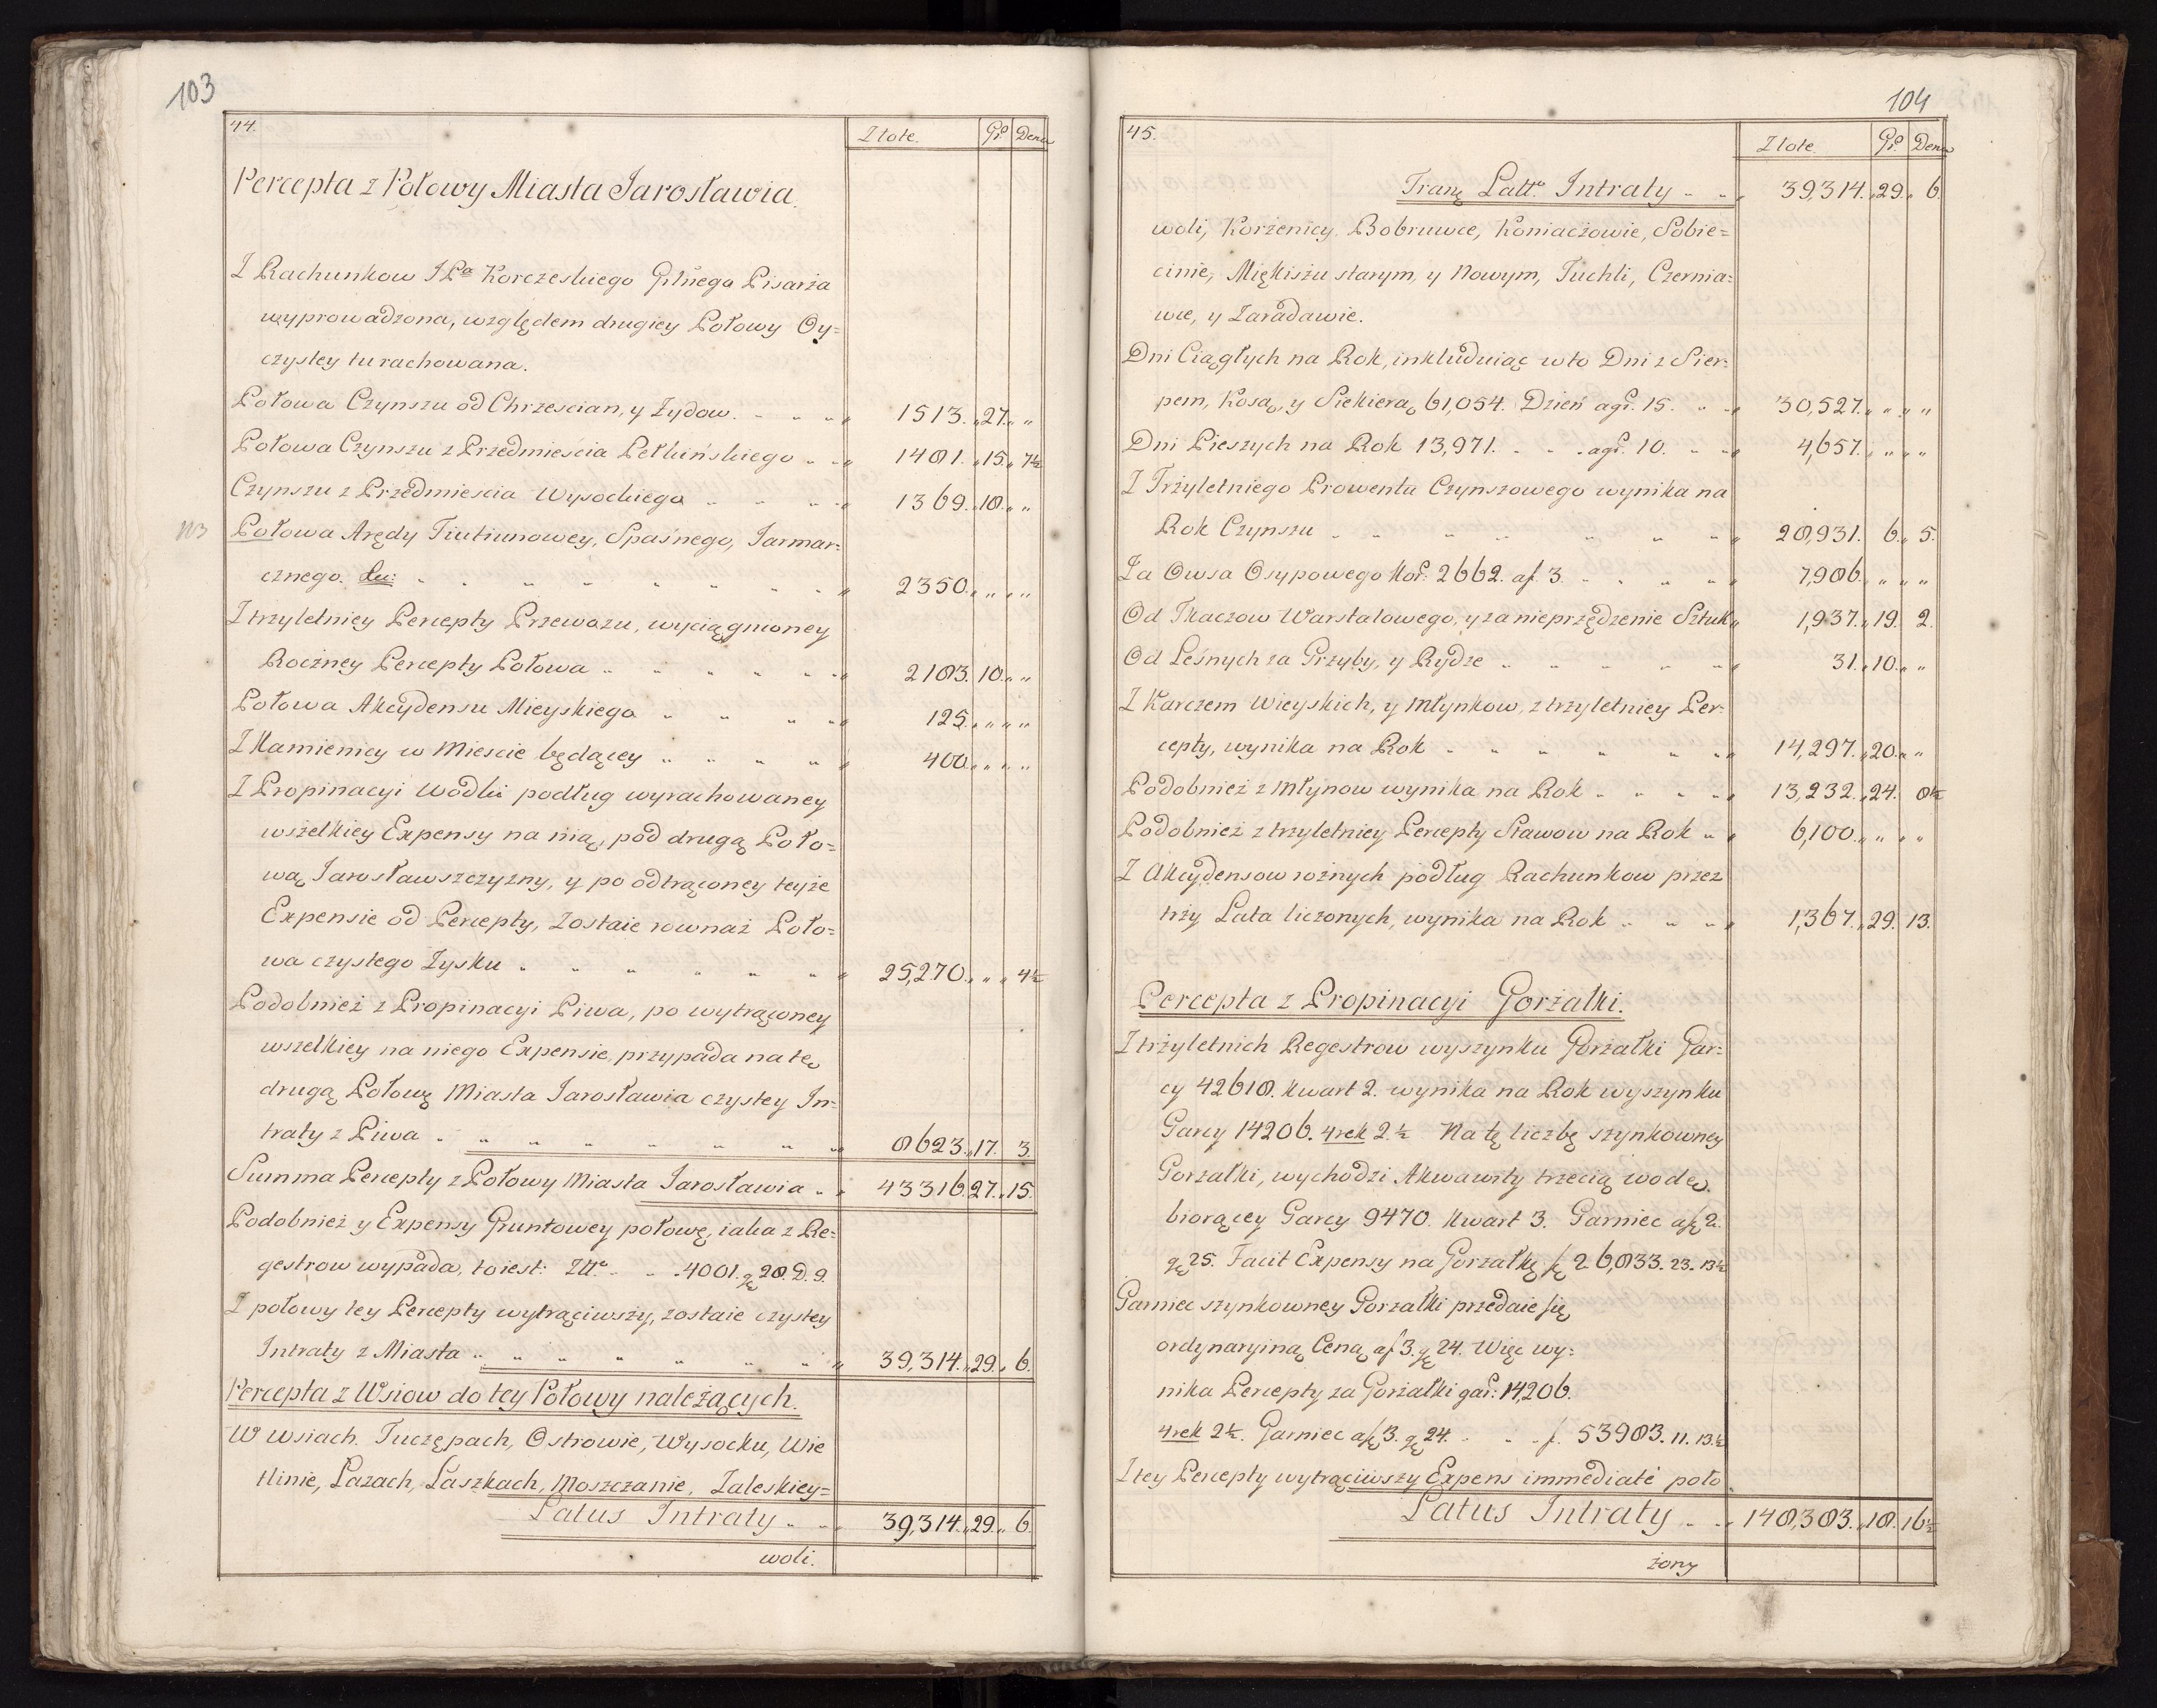 103
44.
Złote. Gr. Dena
Percepta z Połowy Miasta Jarosławia.
Z Rachunkow JPa Korczeskiego Głnego Pisarza
wyprowadzona, względem drugiey Połowy Oy=
czystey tu rachowana.
Połowa Czynszu od Chrzescian, y Zydow. 1513. 27. " "
Połowa Czynszu z Przedmieścia Pełkińskiego 1481. 15. 7½
Czynszu z Przedmiescia Wysockiego 1369. 18. " "
Połowa Arędy Tiutiunowey, Spaśnego, Jarmar=
cznego. Lu: 2350. " " "
Z trzyletniey Percepty Przewozu, wyciągnioney
Roczney Percepty Połowa 2183. 10. " "
Połowa Akcydensu Mieyskiego 125. " " "
Z Kamienicy w Miescie będącey 400. " " "
Z Propinacyi Wodki podług wyrachowaney
wszelkiey Expensy na nią, pod drugą Poło=
wą Jarosławszczyzny, y po odtrąconey teyże
Expensie od Percepty, zostaie rownaż Poło=
wa czystego Zysku 25,270. " " 4½
Podobnież z Propinacyi Piwa, po wytrąconey
wszelkiey na niego Expensie, przypada na tę
drugą Połowę Miasta Jarosławia czystey In=
traty z Piwa 8623. 17. 3.
Summa Percepty z Połowy Miasta Jarosławia 43316. 27. 15.
Podobnież y Expensy Gruntowey połowę, iaka z Re=
gestrow wypada, toiest: Złłe 4001. g 28. D. 9.
Z połowy tey Percepty wytrąciwszy, zostaie czystey
Intraty z Miasta 39,314. 29. 6.
Percepta z Wsiow do tey Połowy należących.
W wsiach. Tuczępach, Ostrowie, Wysocku, Wie
tlinie, Łazach, Łaszkach, Moszczanie, Zaleskiey=
Latus Intraty 39,314. 29. 6.
woli.
104
45.
Złote. Gr. Dena
Tranę Lattę Intraty 39,314. 29. 6.
woli, Korzenicy, Bobruwce, Koniaczowie, Sobie=
cinie, Miękiszu starym, y Nowym, Tuchli, Czernia=
wce, y Zaradawie.
Dni Ciągłych na Rok, inkluduiąc w to Dni z Sier=
pem, Kosą, y Siekierą 61,054. Dzień a gr. 15. 30,527. " " "
Dni Pieszych na Rok 13,971. a gr. 10. 4,657. " " "
Z Trzyletniego Prowentu Czynszowego wynika na
Rok Czynszu 28,931. 6. 5.
Za Owsa Osypowego Kor. 2662. a f. 3. 7,986. " " "
Od Tkaczow Warstatowego, y za nieprzędzenie Sztuk 1,937. 19. 2.
Od Leśnych za Grzyby, y Rydze 31. 10. "
Z Karczem Wieyskich, y Młynkow, z trzyletniey Per=
cepty, wynika na Rok 14,297. 20. "
Podobnież z Młynow wynika na Rok 13,232. 24. 8½
Podobnież z trzyletniey Percepty Stawow na Rok 6,100. " " "
Z Akcydensow rożnych podług Rachunkow przez
trzy Lata liczonych, wynika na Rok 1,367. 29. 13.
Percepta z Propinacyi Gorzałki.
Z trzyletnich Regestrow wyszynku Gorzałki Gar=
cy 42618. Kwart 2. wynika na Rok wyszynku
Garcy 14206. 4rek 2.½ Na tę liczbę szynkowney
Gorzałki, wychodzi Akwawity trzecią wodę
biorącey Garcy 9470. Kwart 3. Garniec a f 2.
g 25. Facit Expensy na Gorzałkę f 26,833. 23. 13½
Garniec szynkowney Gorzałki przedaie się
ordynaryiną Ceną a f 3. g 24. Więc wy=
nika Percepty za Gorzałki gar: 14,206.
4rek 2½. Garniec a f 3. g 24. f. 53983. 11. 13.½
Z tey Percepty wytrąciwszy Expens immediatè poło
Latus Intraty 148,383. 18. 16½
żony